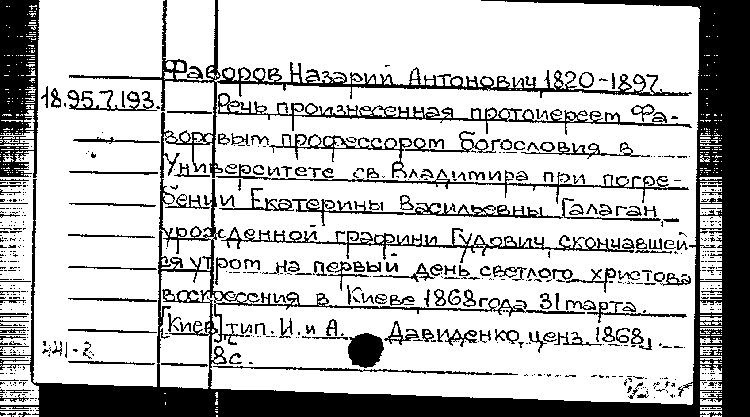 Фаворов, Назарий Антонович, 1820-1897.
18.95.7.193. Речь, произнесенная протоиереем Фа-
воровым, профессором богословия в
Университете св. Владимира, при погре-
бении Екатерины Васильевны Галаган,
урожденной графини Гудович, скончавшей-
ся утром на первый день светлого христова
воскресения в Киеве, 1868 года 31 марта.
[Киев], тип. И. и А. Давиденко, ценз. 1868.
8с.